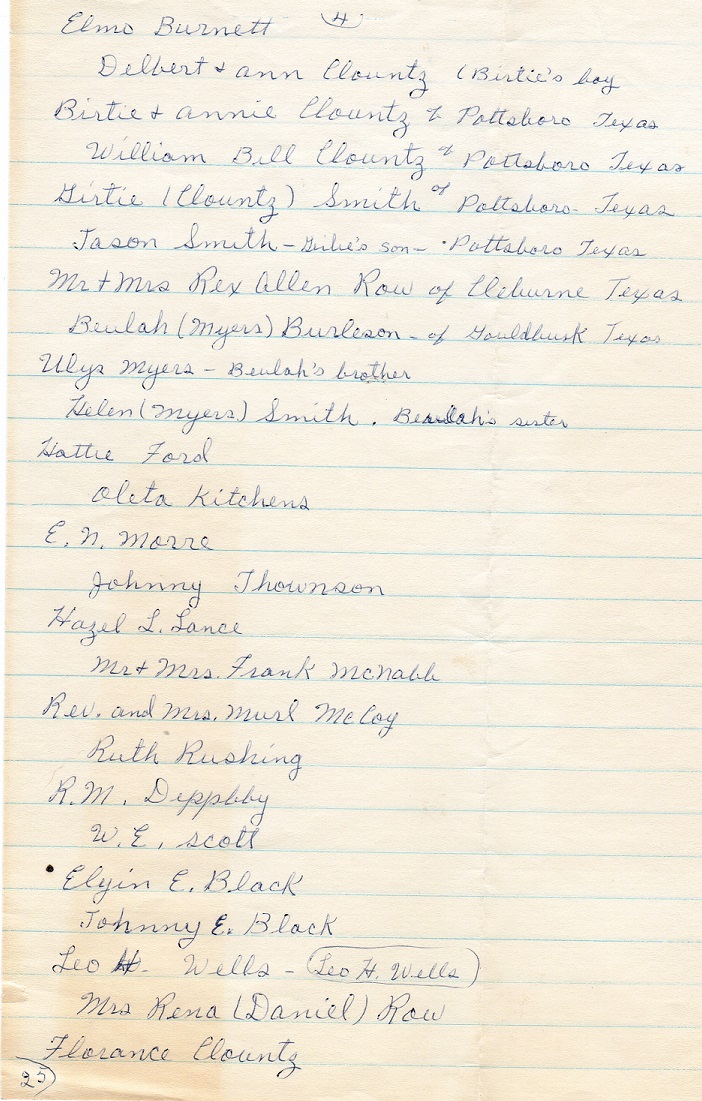 4
Elmo Burnett
Delbert & ann Clountz (Birtie's boy
Birtie & annie Clountz of Pottsboro Texas
William Bill Clountz of Pottsboro Texas
Girtie (Clountz) Smith of Pottsboro - Texas
Jason Smith - Girtie's son - Pottsboro Texas
Mr + Mrs Rex Allen Row of Cleburne Texas
Beulah (Myers) Burleson - of Gouldbusk Texas
Ulys Myers - Beulah's brother
Helen (Myers) Smith . Beulah's sister
Hattie Ford
Oleta Kitchens
E. N. Morre
Johnny Thownson
Hazel L. Lance
Mr + Mrs. Frank McNabb
Rev. and Mrs. Murl McCoy
Ruth Rushing
R.M. Deppbby
W.E. Scott
Elgin E. Black
Johnny E. Black
Leo H. Wells - (Leo H. Wells)
Mrs Rena (Daniel) Row
Florance Clountz
25